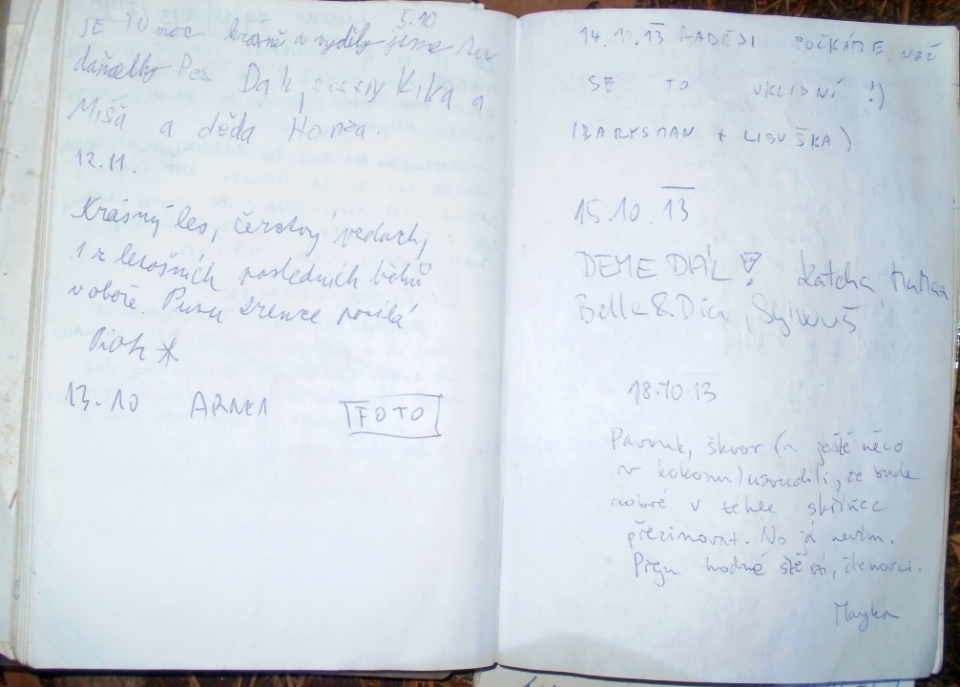 5.10
JE TO moc krásně a viděly jsme
Pes Dak, Kika a
Míša a děda Honza.
12.11.
Krásný les, čerstvý vzduch,
1 z letošních posledních běhů
v oboře. Pusu posílá
13.10 FOTO
14.10.13 RADĚJI POČKÁME, NEŽ
SE TO UKLIDNÍ :)
(BARYSMAN + LIBUŠKA)
15.10.13
DEME DÁL Katcha
Bella & Dia, Sylwuš
18.10.13
Pavouk, škvor (a ještě něco
v kokonu) usoudili, že bude
dobré v tehle skříňce
přezimovat. No já nevim.
Přeju hodně štěstí, členovci.